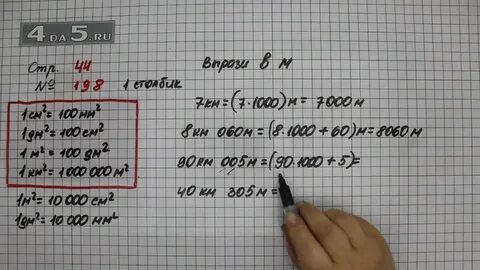 4DA5.RU
Стр. 44
№ 198 1 столбик
1 см² = 100 мм²
1 дм² = 100 см²
1 м² = 100 дм²
1 км² = 1 000 000 м²
1 м² = 10 000 см²
1 дм² = 10 000 мм²
Вырази в м
7 км = (7·1000) м = 7000 м
8 км 060 м = (8·1000 + 60) м = 8060 м
90 км 005 м = (90·1000 + 5) =
40 км 305 м =